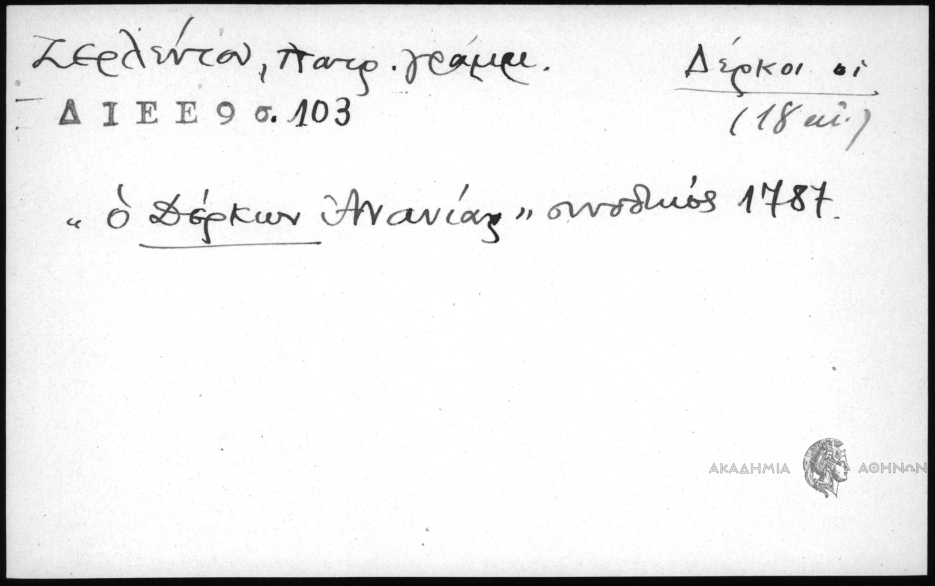 Ζερλέντου, Πατρ. γράμμ.
Δέρκοι οἱ
ΔΙΕΕ 9 σ. 103
(18 αἰ.)
" ὁ Δέρκων Ἀνανίας" συνοδικός 1787.
ΑΚΑΔΗΜΙΑ ΑΘΗΝΩΝ